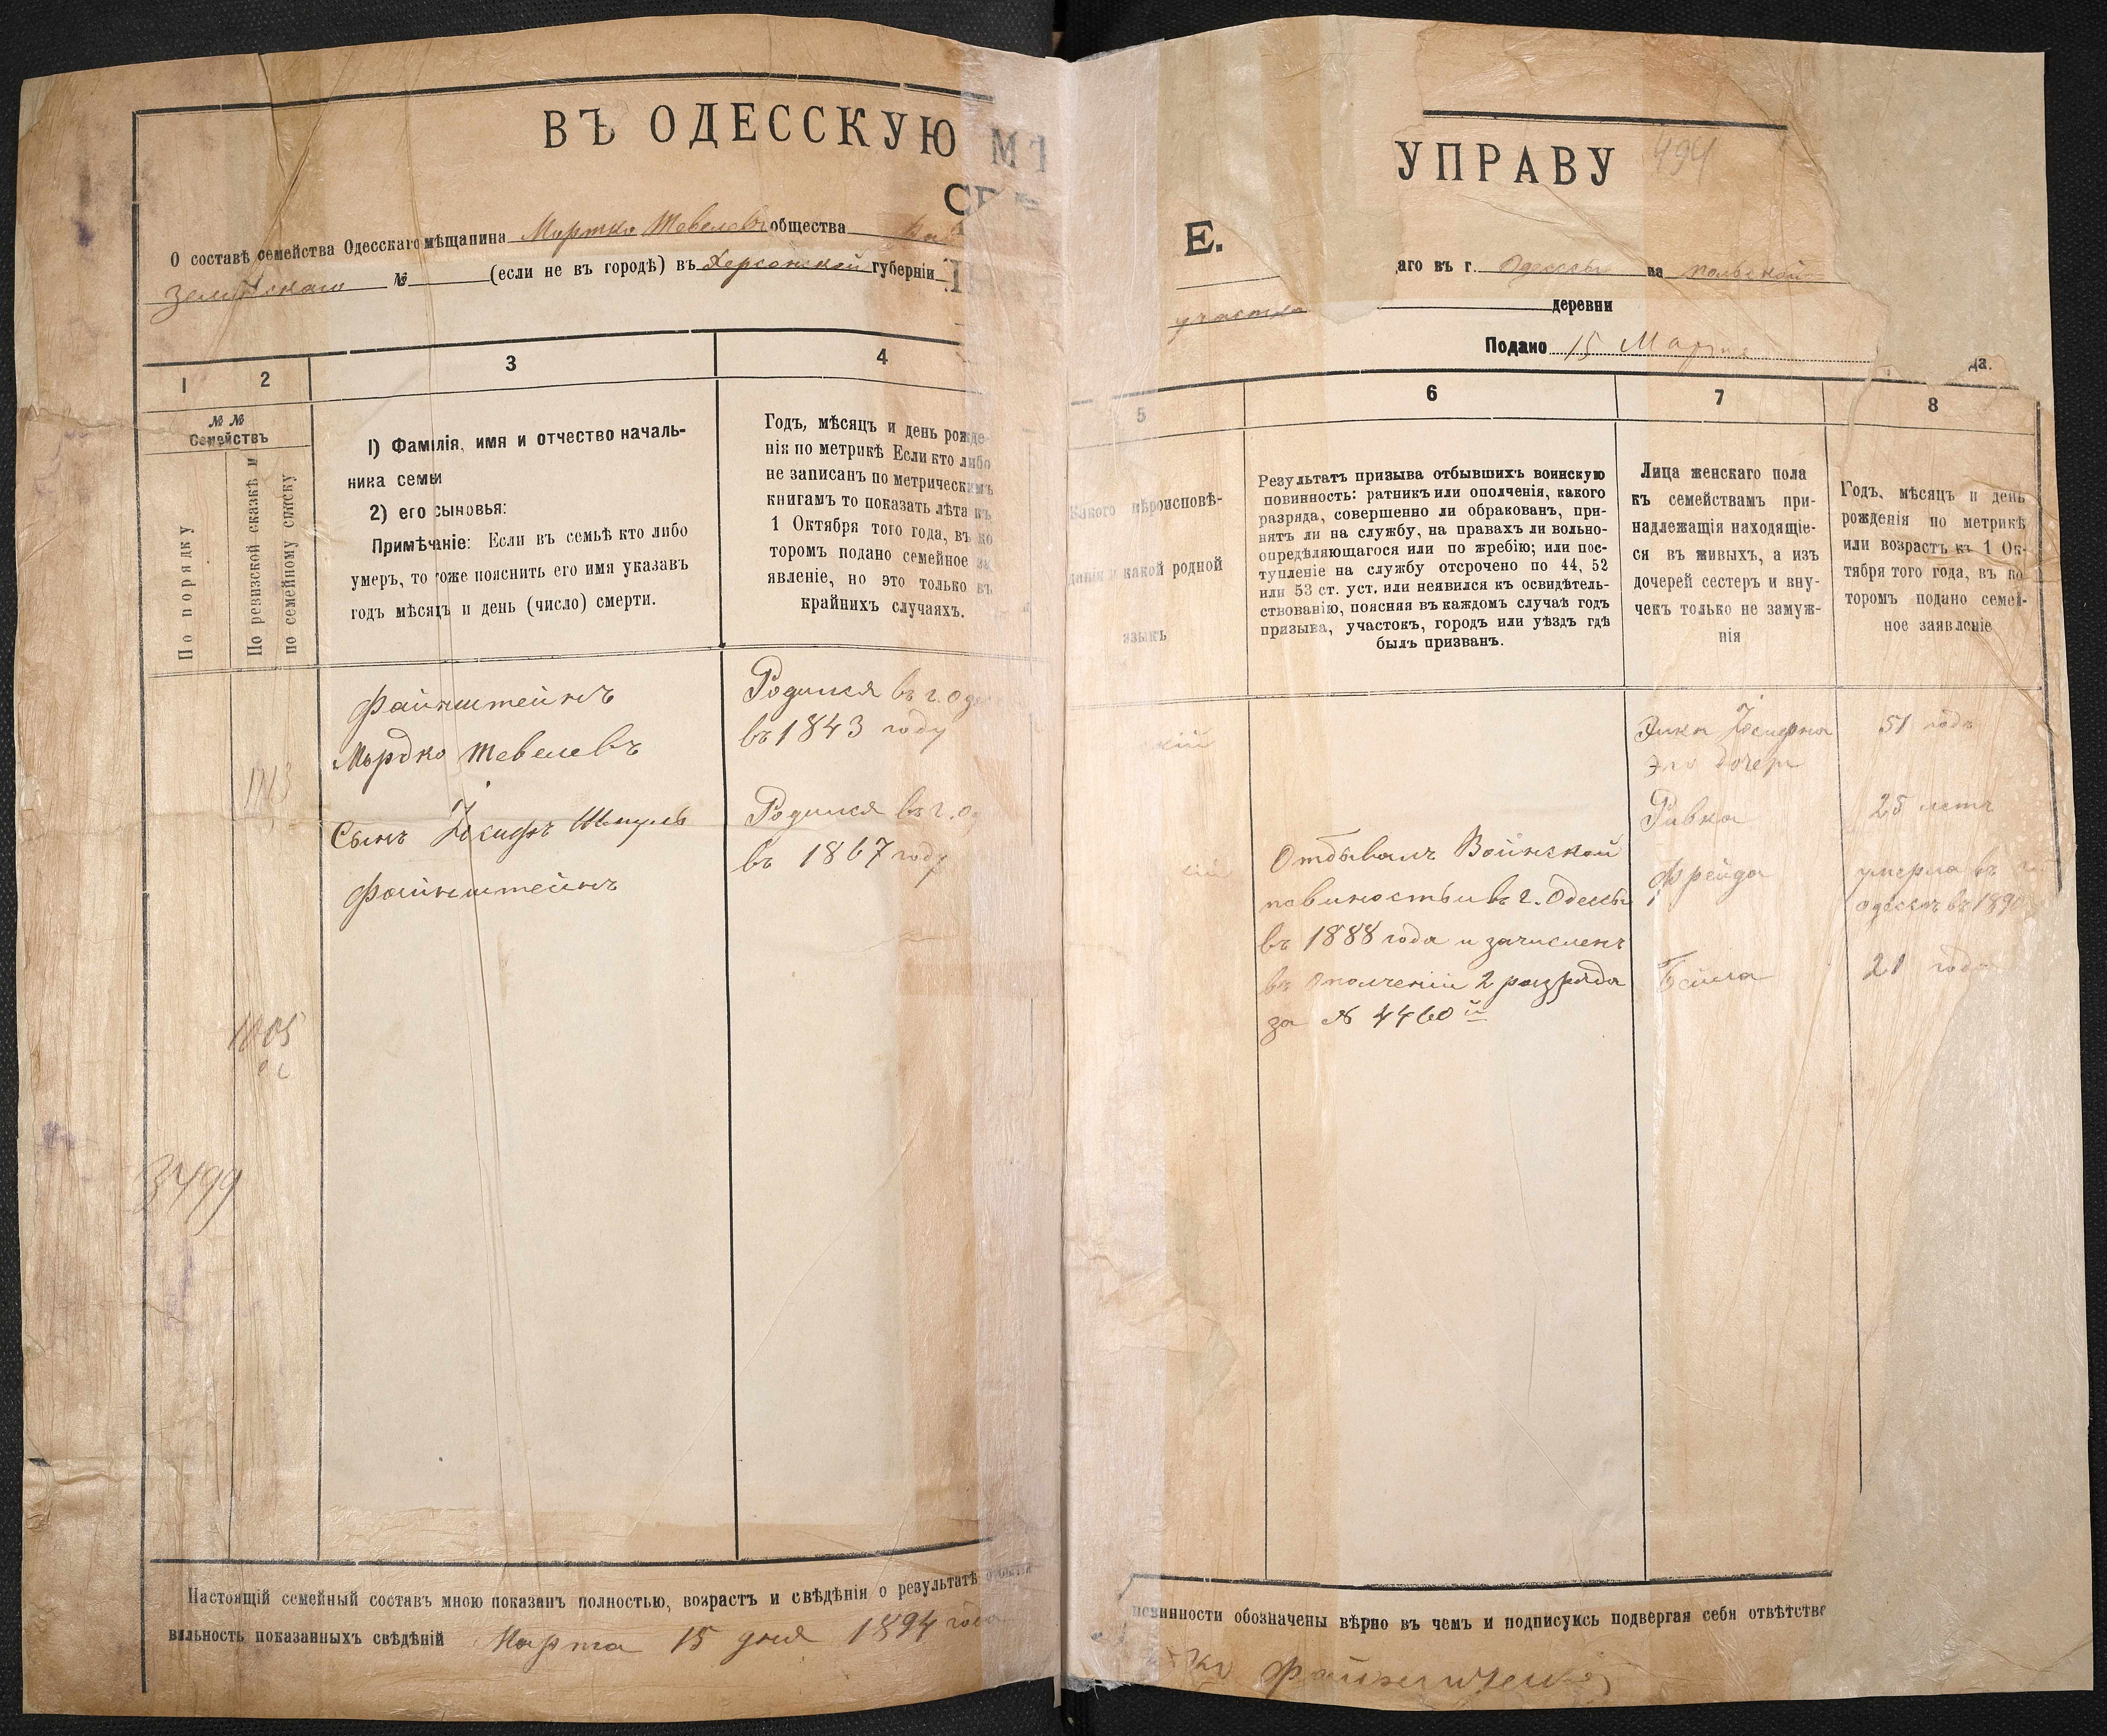 ВЪ ОДЕССКУЮ
О составѣ семейства Одесскаго мѣщанина Мортко Тевелевъ общества
№ (если не въ городѣ) въ Херсонской губерніи
1
2
3
4
№ №
Семействъ
По порядку
По ревизской сказкѣ и
по семейному списку
1) Фамилія, имя и отчество началь-
ника семьи
2) его сыновья:
Примѣчаніе: Если въ семьѣ кто либо
умеръ, то тоже пояснить его имя указавъ
годъ мѣсяцъ и день (число) смерти.
Годъ, мѣсяцъ и день рожде-
нія по метрикѣ Если кто либо
не записанъ по метрическимъ
книгамъ то показать лѣта къ
1 Октября того года, въ ко
торомъ подано семейное за
явленіе, но это только въ
крайнихъ случаяхъ.
Файнштейнъ
Мордко Тевелевъ
Родился въ г. Оде
въ 1843 году
1713
Сынъ Іосифъ Шмуль
Файнштейнъ
Родился въ г. О
въ 1867 году
3499
Настоящій семейный составъ мною показанъ полностью, возрастъ и свѣдѣнія о результатѣ
вильность показанныхъ свѣдѣній Марта 15 дня 1894 года
УПРАВУ
494
Е.
аго въ г. Одессы на польской
участка деревни
Подано 15 Марта да.
5
6
7
8
Какого вѣроисповѣ-
данія и какой родной
языкъ
Результатъ призыва отбывшихъ воинскую
повинность: ратникъ или ополченія, какого
разряда, совершенно ли обракованъ, при-
нятъ ли на службу, на правахъ ли вольно-
опредѣляющагося или по жребію; или пос-
тупленіе на службу отсрочено по 44, 52
или 53 ст. уст. или неявился къ освидѣтель-
ствованію, поясняя въ каждомъ случаѣ годъ
призыва, участокъ, городъ или уѣздъ гдѣ
былъ призван.
Лица женскаго пола
къ семействамъ при-
надлежащія находящіе-
ся въ живыхъ, а изъ
дочерей сестеръ и вну-
чекъ только не замуж-
нія
Годъ, мѣсяцъ и день
рожденія по метрикѣ
или возрастъ къ 1 Ок-
тября того года, въ ко
торомъ подано семей-
ное заявленіе
кій
51 годъ
Его дочери
Ривка 25 летъ
кій
Отбывалъ Воинской
повиностьи въ г. Одессы
въ 1888 года и зачисленъ
въ Ополченіи 2 разряда
за № 4460й
Фрейда
умерла въ г.
одессѣ въ 1890
Бейла 21 годъ
повинности обозначены вѣрно въ чемъ и подписуюсь подвергая себя отвѣтстве